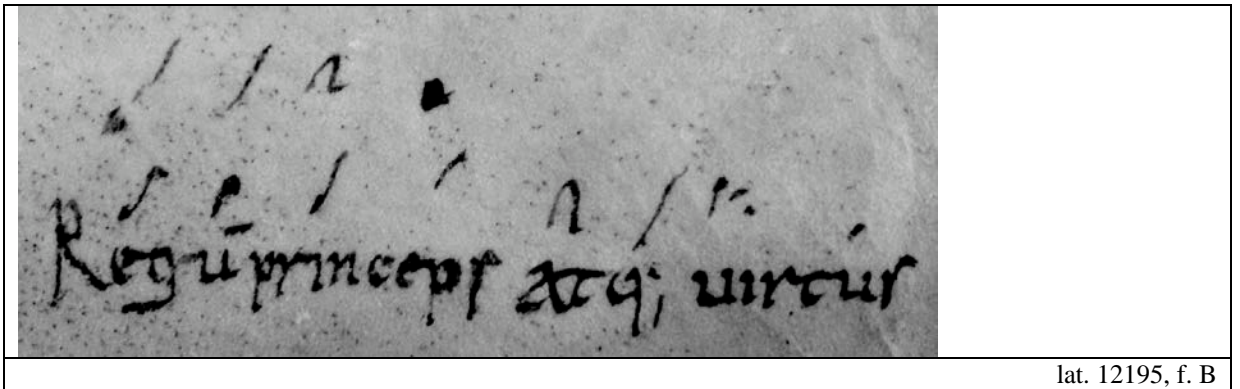 Regū princeps atq; uirtus
lat. 12195, f. B